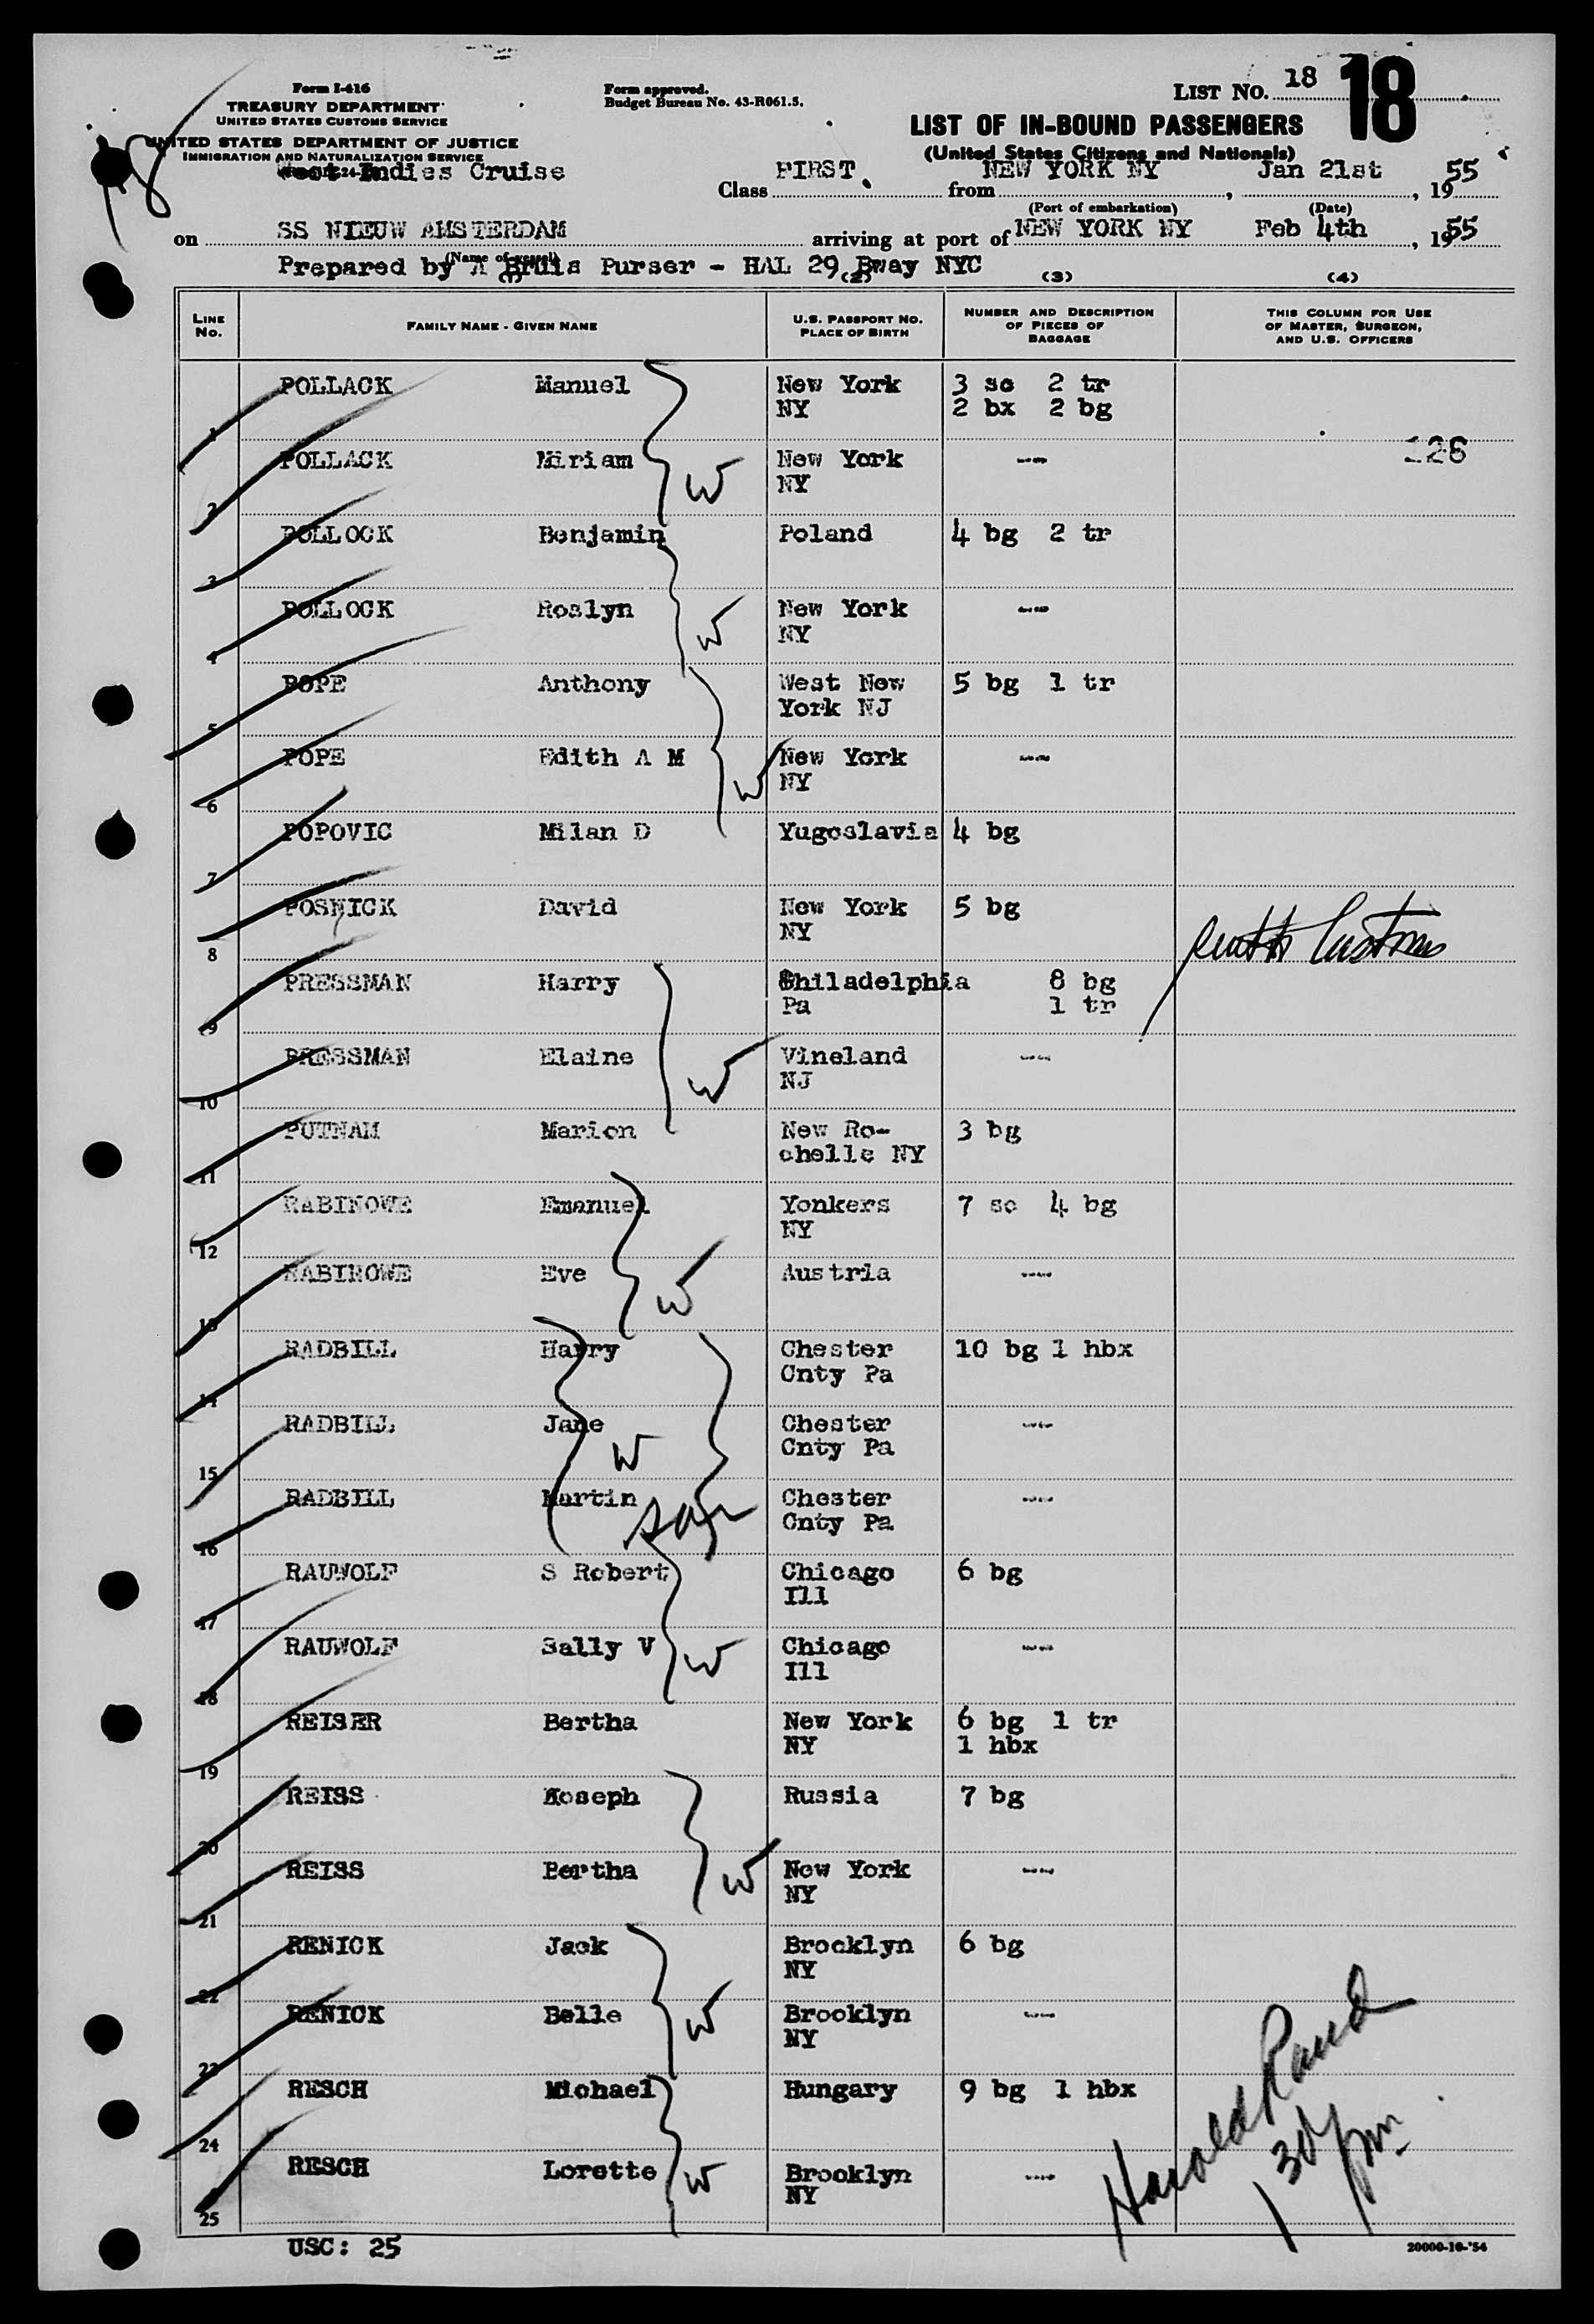 Form I-416
TREASURY DEPARTMENT
UNITED STATES CUSTOMS SERVICE
UNITED STATES DEPARTMENT OF JUSTICE
IMMIGRATION AND NATURALIZATION SERVICE
West Indies Cruise
Form approved.
Budget Bureau No. 43-R061.5.
LIST NO. 18 18
LIST OF IN-BOUND PASSENGERS
(United States Citizens and Nationals)
Class FIRST from NEW YORK NY, Jan 21st, 1955
(Port of embarkation) (Date)
on SS NIEUW AMSTERDAM arriving at port of NEW YORK NY Feb 4th, 1955
(Name of vessel)
Prepared by A Bruis Purser - HAL 29 Bway NYC
(1) (2) (3) (4)
LINE No. FAMILY NAME - GIVEN NAME U.S. PASSPORT NO. PLACE OF BIRTH NUMBER AND DESCRIPTION OF PIECES OF BAGGAGE THIS COLUMN FOR USE OF MASTER, SURGEON, AND U.S. OFFICERS
1 POLLACK Manuel New York NY 3 sc 2 tr 2 bx 2 bg
2 POLLACK Miriam W New York NY --- 126
3 POLLOCK Benjamin Poland 4 bg 2 tr
4 POLLOCK Roslyn W New York NY ---
5 POPE Anthony West New York NJ 5 bg 1 tr
6 POPE Edith A M W New York NY ---
7 POPOVIC Milan D Yugoslavia 4 bg
8 POSNICK David New York NY 5 bg
Customs
9 PRESSMAN Harry Philadelphia Pa 8 bg 1 tr
10 PRESSMAN Elaine W Vineland NJ ---
11 PUTNAM Marion New Ro-chelle NY 3 bg
12 RABINOWE Emanuel Yonkers NY 7 sc 4 bg
13 RABINOWE Eve W Austria ---
14 RADBILL Harry Chester Cnty Pa 10 bg 1 hbx
15 RADBILL Jane W Chester Cnty Pa ---
16 RADBILL Martin Chester Cnty Pa ---
17 RAUWOLF S Robert Chicago Ill 6 bg
18 RAUWOLF Sally V W Chicago Ill ---
19 REISER Bertha New York NY 6 bg 1 tr 1 hbx
20 REISS Joseph Russia 7 bg
21 REISS Bertha W New York NY ---
22 RENICK Jack Brooklyn NY 6 bg
23 RENICK Belle W Brooklyn NY ---
24 RESCH Michael Hungary 9 bg 1 hbx
25 RESCH Lorette W Brooklyn NY ----
Harold Rand
1 30 pm
USC: 25
20000-10-'54